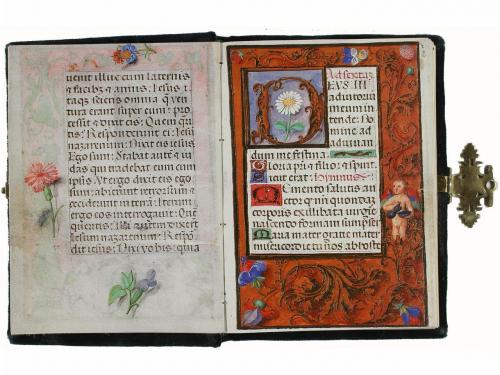 uenit illuc cum laternis
& facibus & armis: Iesus i
taqs sciens omnia q ven
tura erant super eum: pro
cessit & dixit eis: Quem qui
tis: Responderunt ei: Iesu
nazarenum: Dixit eis iesus
Ego sum: Stabat aut & iu
das qui tradebat eum cum
ipsis: Vt ergo dixit eis ego
sum: abierunt retrorsum &
ceciderunt in terrā: Iterum
ergo eos interrogauit: Que
queritis: dixerūt
Iesum nazarenum: Respō
dit iesus: Dixi vobis: quia
Ad sextā
DEVS IN
adiutoriū
meum in
tende: Do
mine ad
adiuuan
dum me festina
Gloria pri & filio: & spiri
erat: hymnus
Memento salutis au
ctor q nri quondam
corporis ex illibata uirgīe
nascendo formam sumpser
Maria mater gratie mater
misericordie tu nos ab hoste